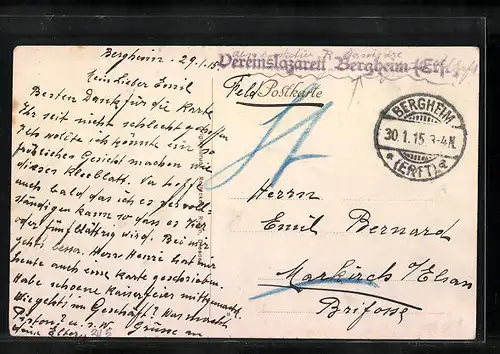 Bergheim, 29.1.15.
Mein Lieber Emil
Besten Dank für die Karte
Ihr seit nicht schlecht getroffen
Ich wollte ich könnte ein so
fröhliches Gesicht machen wie
dieses Kleeblatt. Ich hoffe
auch bald das ich es vervoll-
ständigen kann so dass es Vier
oder fünfblättrig wird. Bei mir
gehts besser. Herr Henri hat mir
heute auch eine Karte geschrieben.
Habe schöne Kaiserfeier mitgemacht.
Wie geht's im Geschäft? Was macht
u.s.w. Grüsse an
Deine Eltern
Vereinslazarett Bergheim (Erft)
Feldpostkarte
BERGHEIM
30.1.15.3-4N.
* (ERFT) a
Herrn
Emil Bernard
Markirch / Elsass
Brifosse